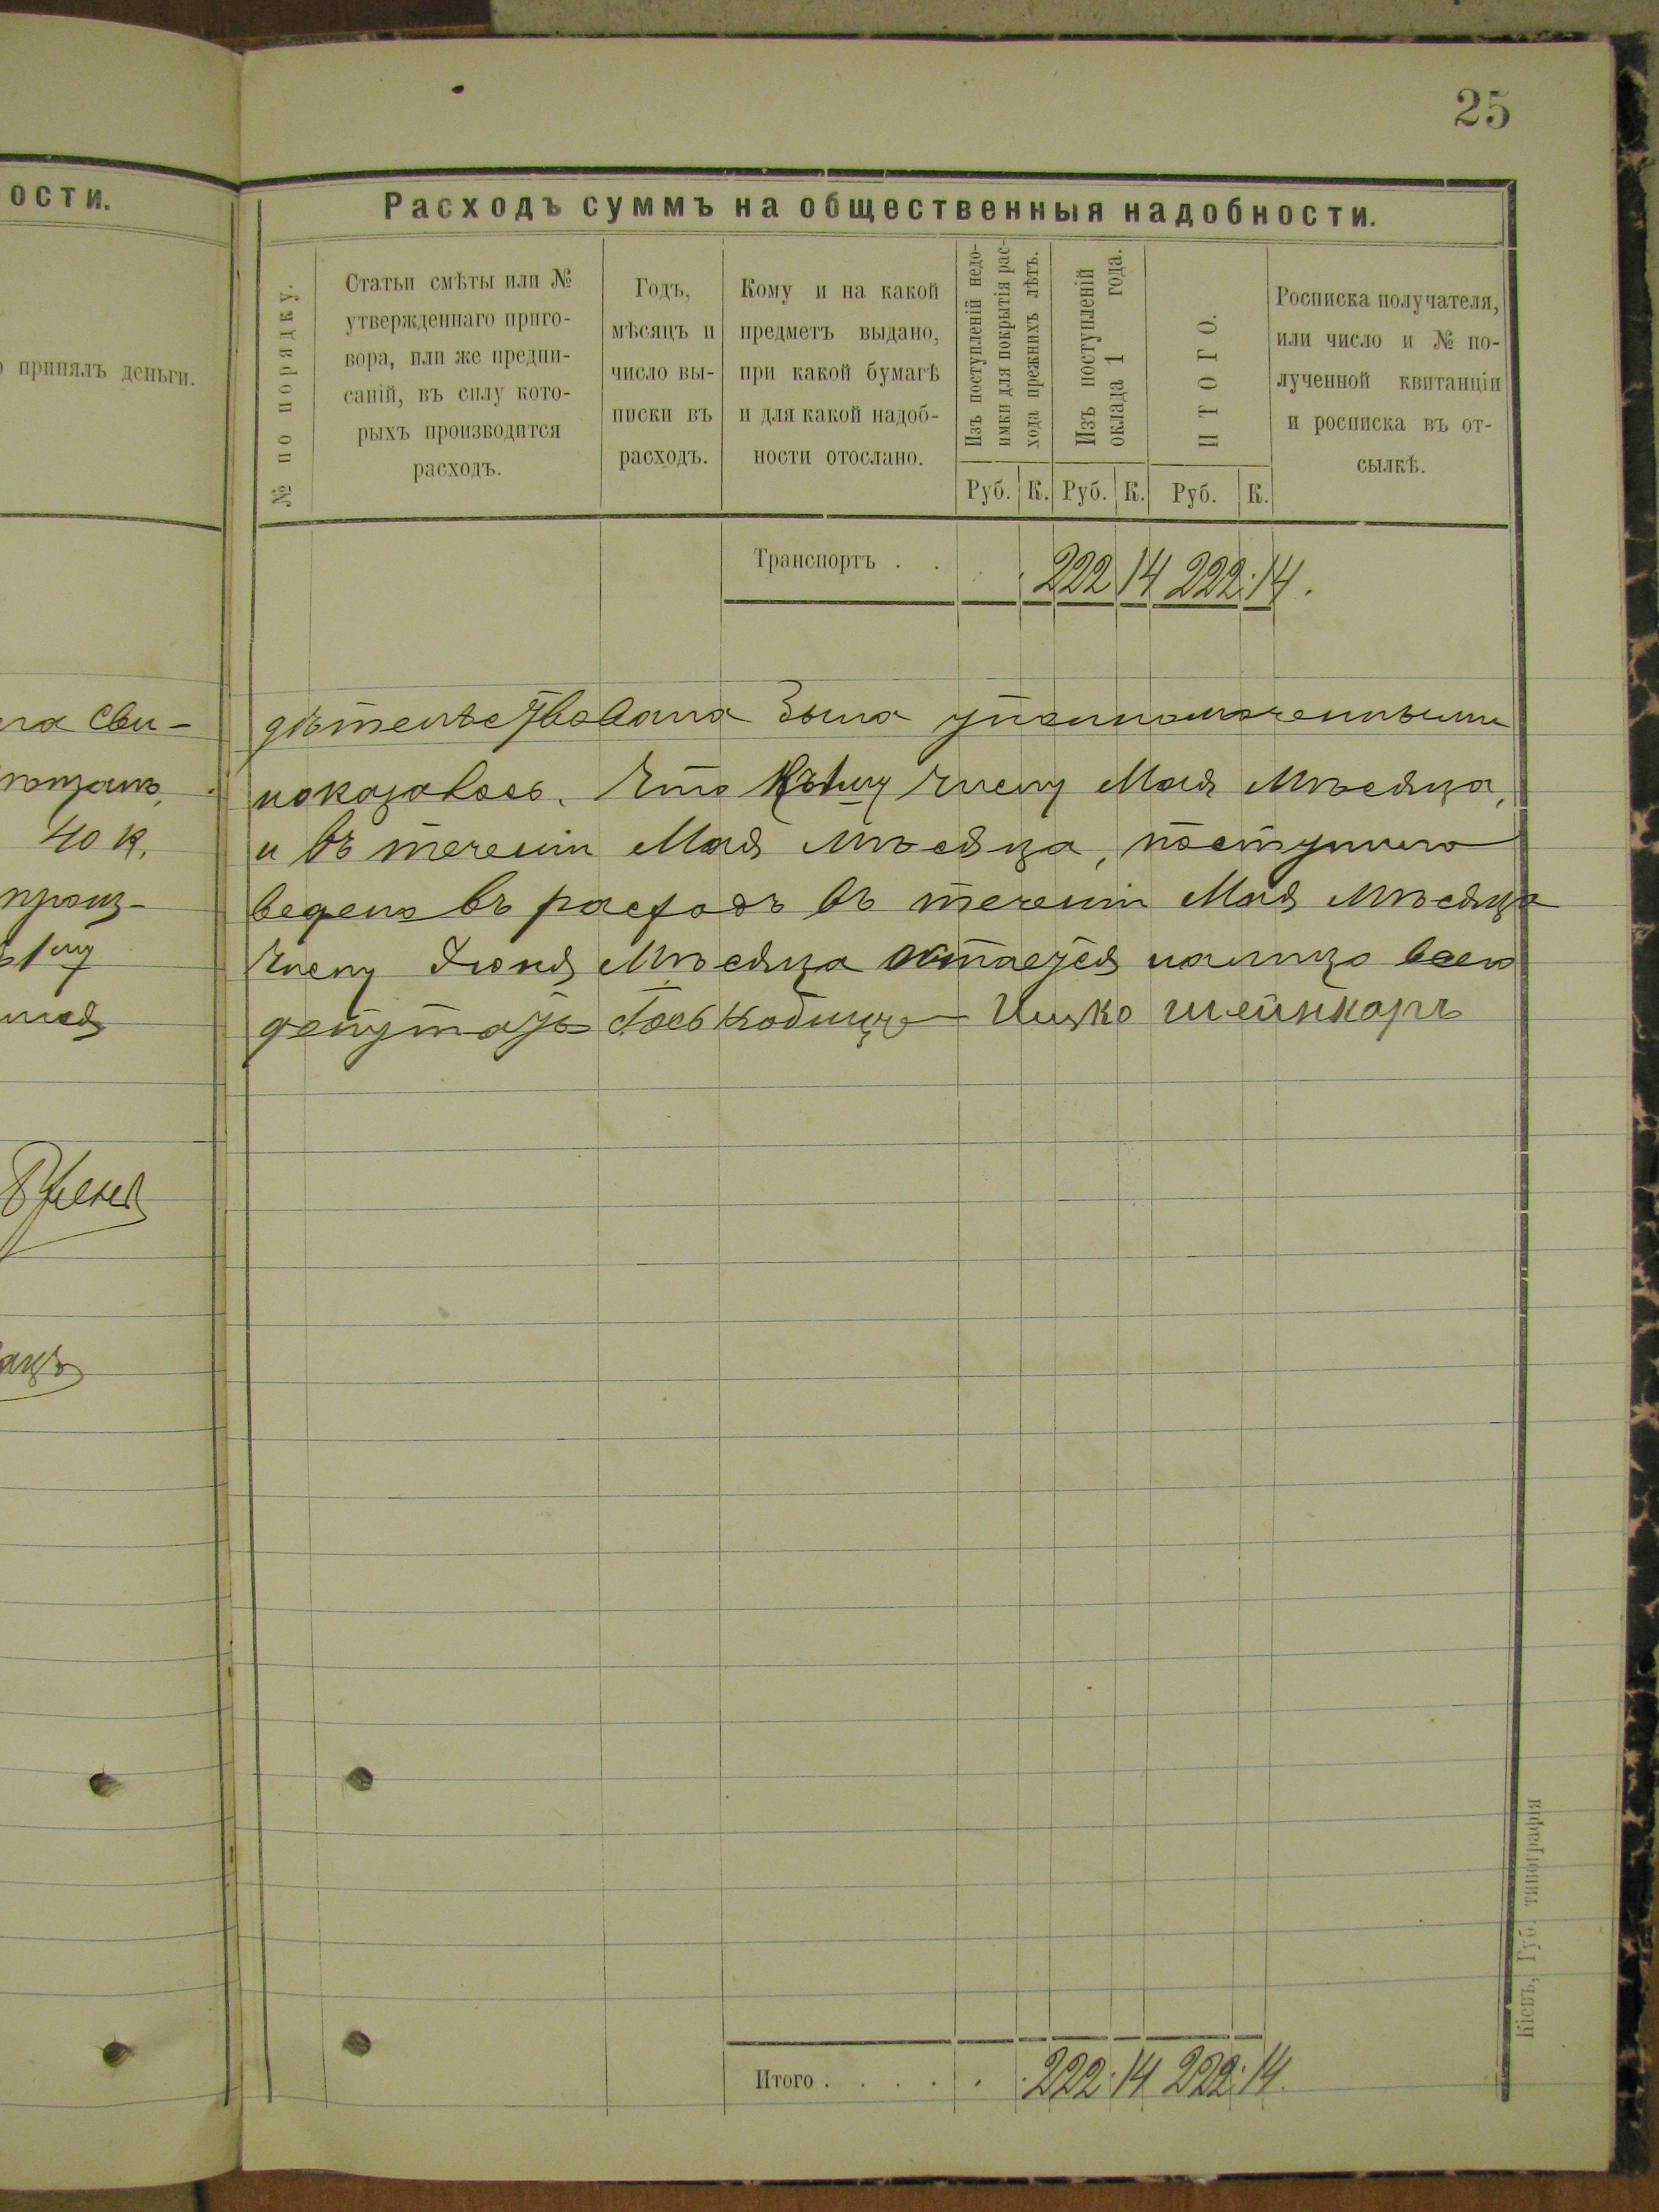 25
ости.
о принялъ деньги.
Расходъ суммъ на общественныя надобности.
№ по порядку.
Статьи смѣты или №
утвержденнаго приго-
вора, или же предпи-
саній, въ силу кото-
рыхъ производится
расходъ.
Годъ,
мѣсяцъ и
число вы-
писки въ
расходъ.
Кому и на какой
предметъ выдано,
при какой бумагѣ
и для какой надоб-
ности отослано.
Изъ поступленій недо-
имки для покрытія рас-
хода прежнихъ лѣтъ.
Изъ поступленій
оклада 1 года.
ИТОГО.
Росписка получателя,
или число и № по-
лученной квитанціи
и росписка въ от-
сылкѣ.
Руб. К. Руб. К. Руб. К.
Транспортъ . . 222 14 222.14.
сви-
40 к.
произ-
1му
дѣтельствована была уполномоченными
показалось, что къ 1му числу Мая Мѣсяца,
и въ теченіи Мая мѣсяца, поступило
ведено въ расходъ въ теченіи Мая Мѣсяца
числу Іюня Мѣсяца остается налицо всего
депутатъ Ицко Шейнкаръ
Итого . . . . . . 222.14 222.14.
Кіевъ, Губ. типографія